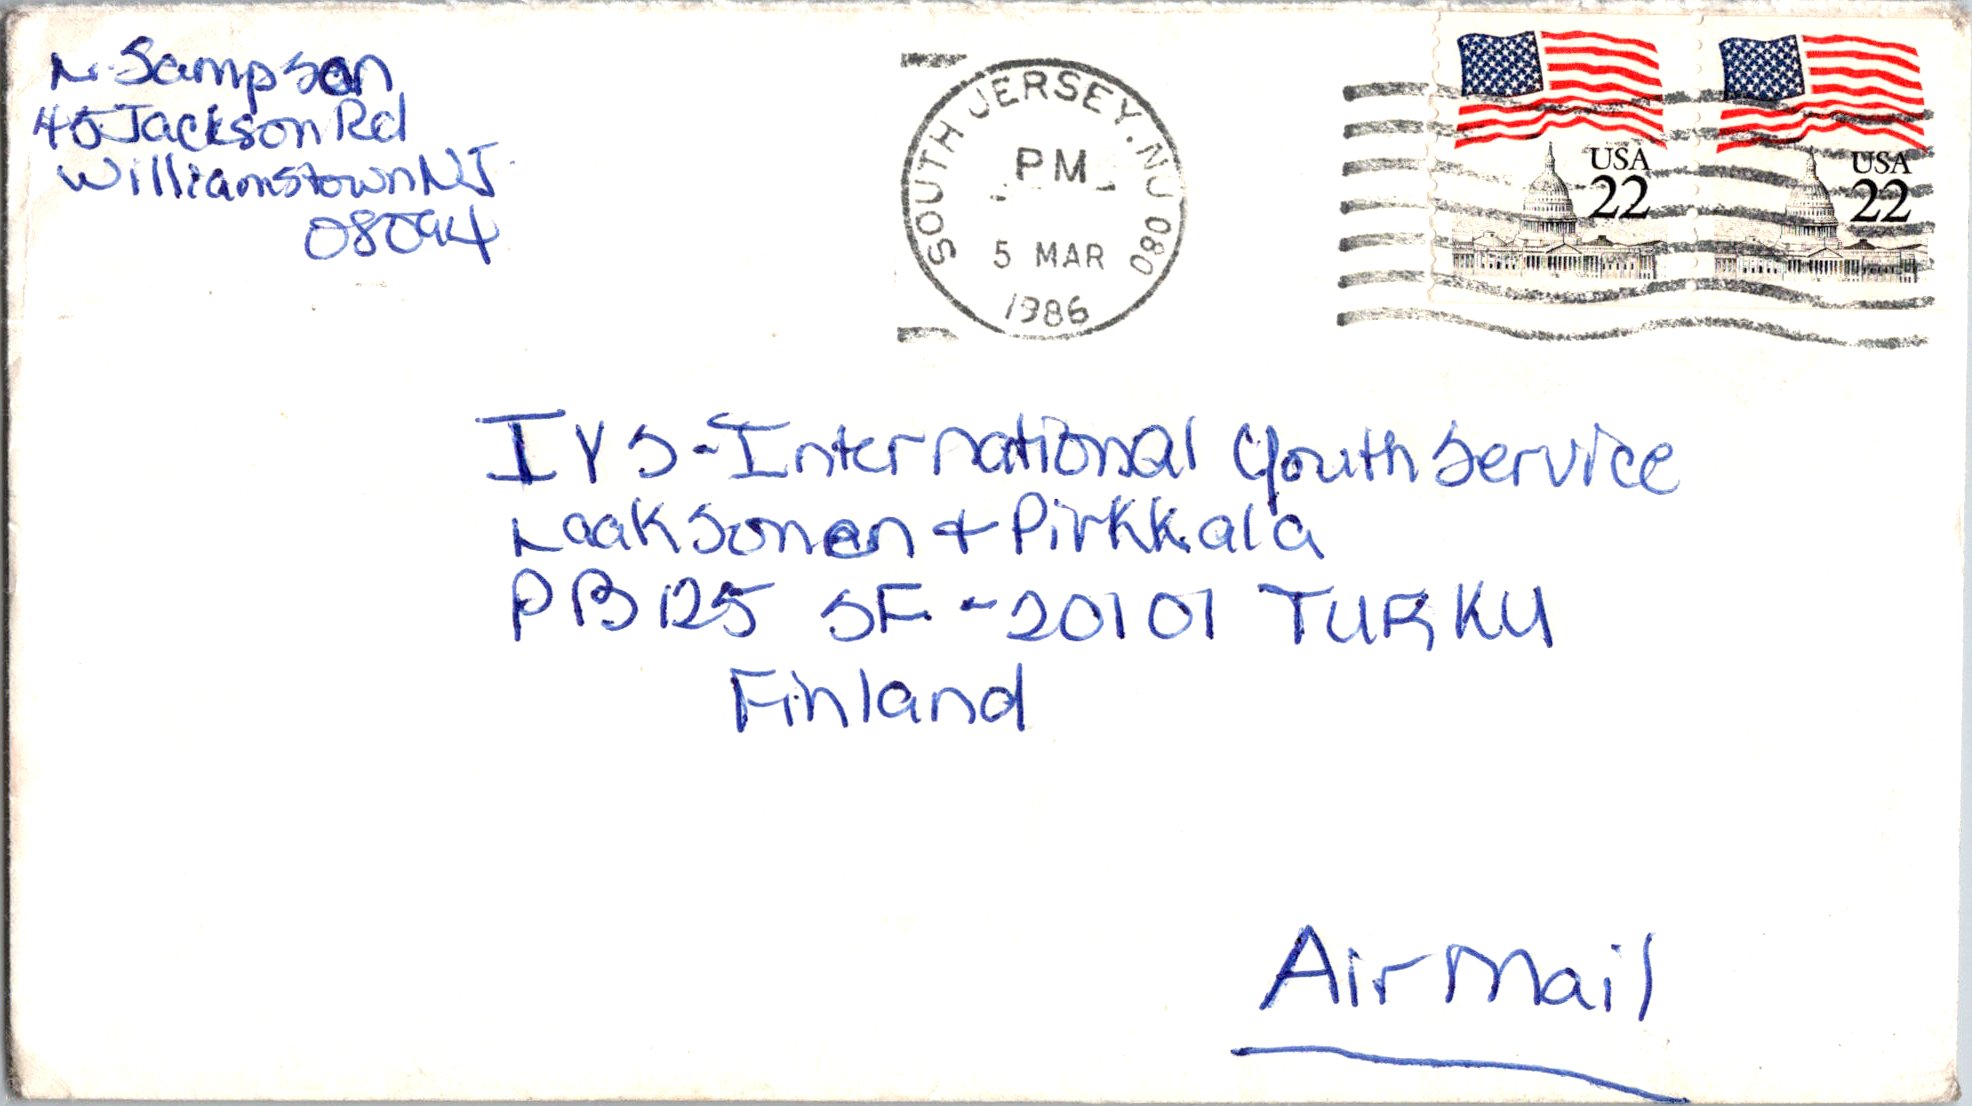 L. Sampson
45 Jackson Rd
Williamstown NJ
08094
SOUTH JERSEY, NJ 080
PM
5 MAR
1986
USA
22
USA
22
IYS-International Youth Service
Laaksonen + Pirkkala
PB 125 SF-20101 TURKU
Finland
Air Mail